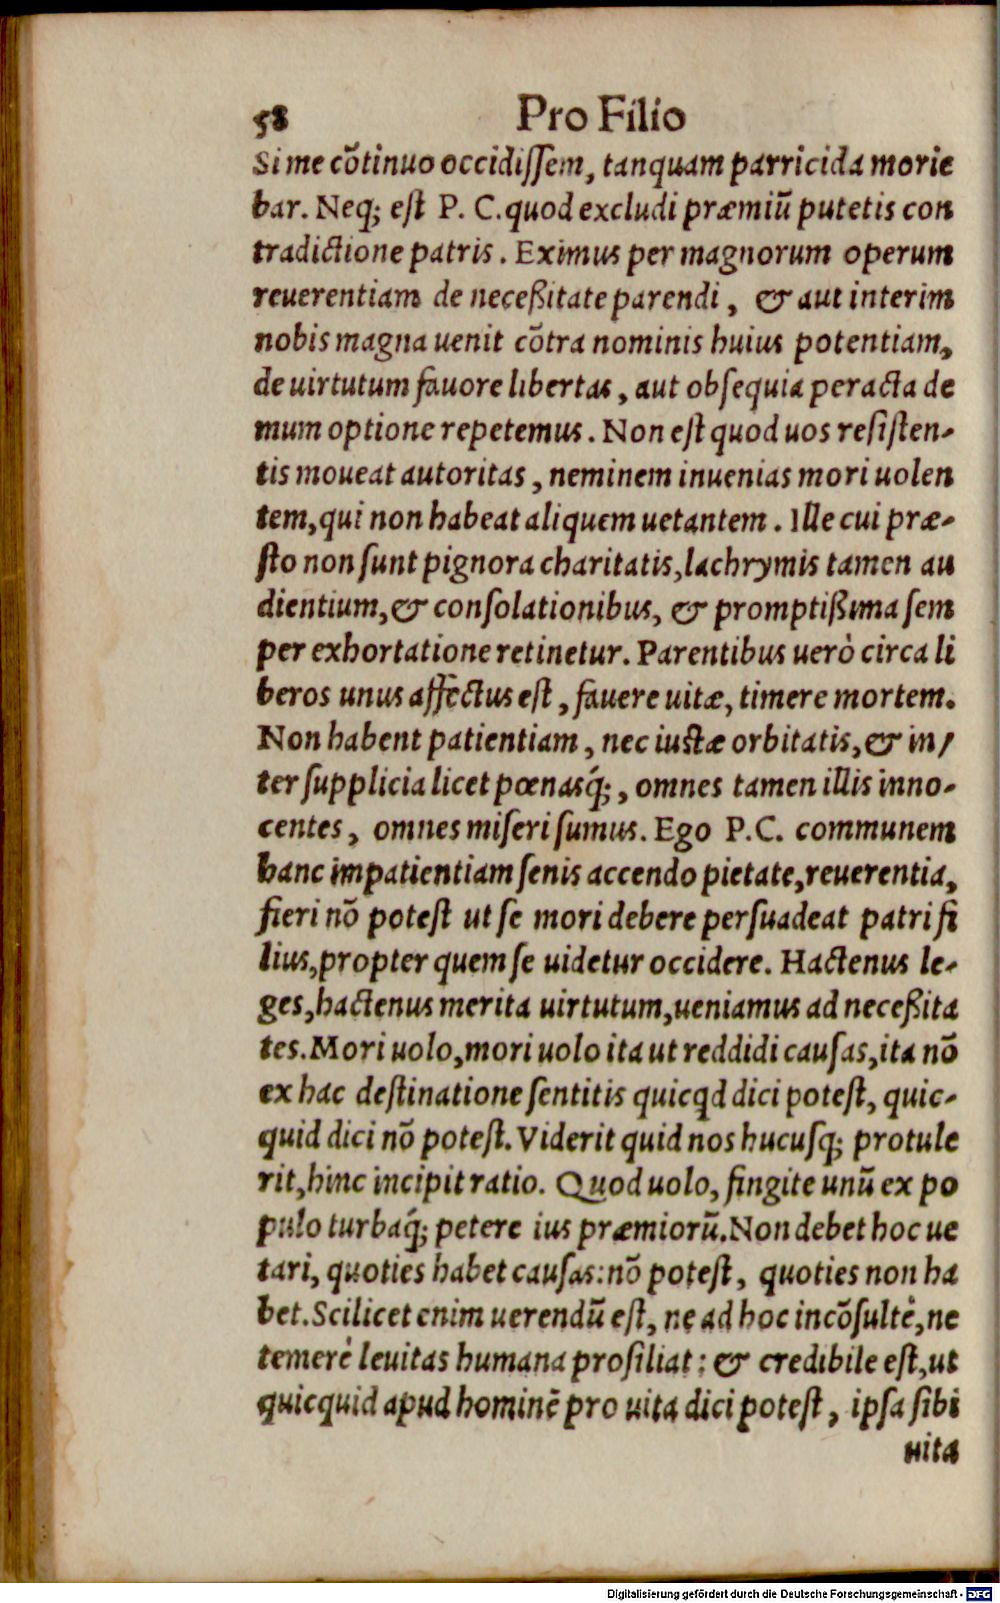 58 Pro Filio
Si me cōtinuo occidissem, tanquam parricida morie
bar. Neq; est P. C. quod excludi præmiū putetis con
tradictione patris. Eximus per magnorum operum
reuerentiam de neceßitate parendi, & aut interim
nobis magna uenit cōtra nominis huius potentiam,
de uirtutum fauore libertas, aut obsequia peracta de
mum optione repetemus. Non est quod uos resisten-
tis moueat autoritas, neminem inuenias mori uolen
tem, qui non habeat aliquem uetantem. Ille cui præ-
sto non sunt pignora charitatis, lachrymis tamen au
dientium, & consolationibus, & promptißima sem
per exhortatione retinetur. Parentibus uerò circa li
beros unus affectus est, fauere uitæ, timere mortem.
Non habent patientiam, nec iustæ orbitatis, & in/
ter supplicia licet pœnasq́;, omnes tamen illis inno-
centes, omnes miseri sumus. Ego P.C. communem
hanc impatientiam senis accendo pietate, reuerentia,
fieri nō potest ut se mori debere persuadeat patri fi
lius, propter quem se uidetur occidere. Hactenus le-
ges, hactenus merita uirtutum, ueniamus ad neceßita
tes. Mori uolo, mori uolo ita ut reddidi causas, ita nō
ex hac destinatione sentitis quicqd dici potest, quic-
quid dici nō potest. Viderit quid nos hucusq; protule
rit, hinc incipit ratio. Quod uolo, fingite unū ex po
pulo turbaq́; petere ius præmiorū. Non debet hoc ue
tari, quoties habet causas: nō potest, quoties non ha
bet. Scilicet enim uerendū est, ne ad hoc incōsultè, ne
temerè leuitas humana prosiliat: & credibile est, ut
quicquid apud hominē pro uita dici potest, ipsa sibi
uita
Digitalisierung gefördert durch die Deutsche Forschungsgemeinschaft - DFG